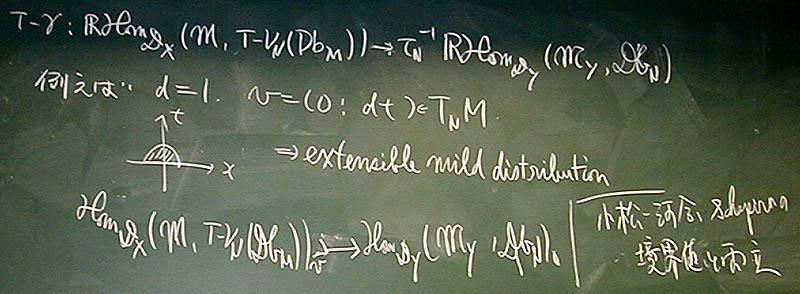 T-γ: ℝHom_{𝒟_X}(𝓜, T-ν_N(Db_M)) → τ_N^{-1} ℝHom_{𝒟_Y}(𝓜_Y, 𝒟b_N)
例えば d=1. v=(0: dt) ∈ T_N M
t
x
⇒ extensible mild distribution
Hom_{𝒟_X}(𝓜, T-ν_N(𝒟b_M))_v → Hom_{𝒟_Y}(𝓜_Y, 𝒟b_N)_0
小松-河合, Schapira
境界値